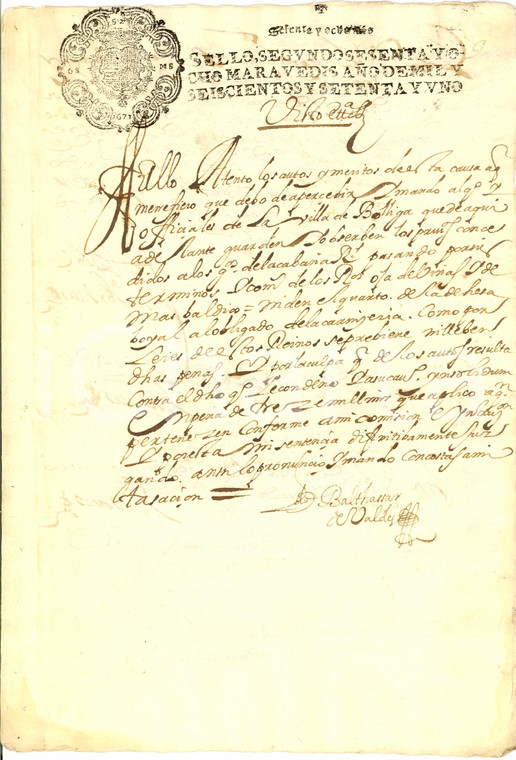 Sesenta y ocho mrs
SELLO, SEGVNDO SESENTA Y O
CHO MARAVEDIS AÑO DE MIL Y
SEISCIENTOS Y SETENTA Y VNO
1671
Fallo Atento los autos y meritos de esta causa a q
me refiero que debo de apercebir y mando al q y
officiales de la Villa de que de aqui
adelante guarden y observen los conce
didos a los de la cabaña Rl pasando por sus
terminos de los oja de Vinas y de
mas baldios = ni den el quarto de la dehesa
boyal al obligado de la carnizeria Como por
Leies de estos Reinos se prebiene ni lleben
dhas penas y por la culpa q de los autos resulta
contra el dho q Le condeno y a sus
en pena de tres mill mrs que aplico a q
pertenezen conforme a mi comision
y por esta mi sentencia difinitibamente juz
gando ansi lo pronuncio y mando con costas a mi
tasacion =
D Balthassar
de Valdes